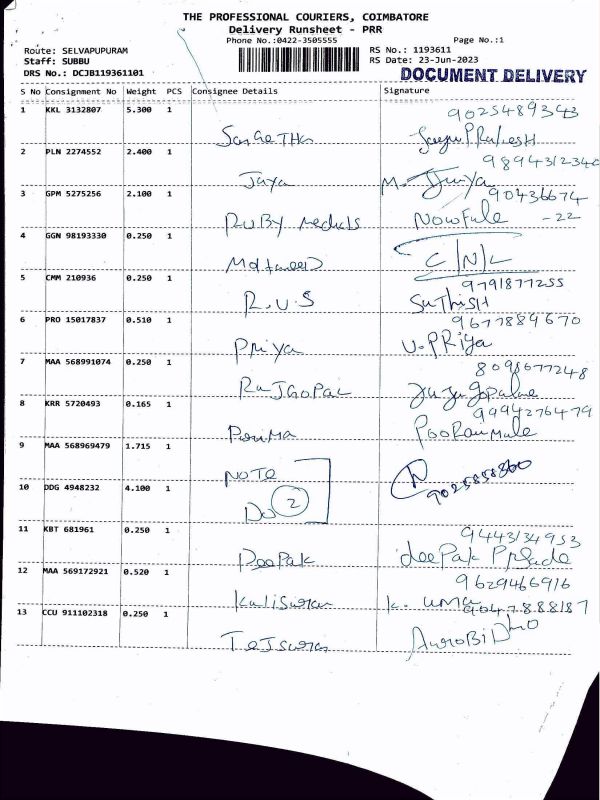 THE PROFESSIONAL COURIERS, COIMBATORE
Delivery Runsheet - PRR
Phone No.:0422-3505555
Page No.:1
Route: SELVAPUPURAM
RS No.: 1193611
Staff: SUBBU
RS Date: 23-Jun-2023
DRS No.: DCJB119361101
DOCUMENT DELIVERY
S No Consignment No Weight PCS Consignee Details Signature
1 KKL 3132807 5.300 1 9025489343
SangeTha
2 PLN 2274552 2.400 1 9894312340
Jaya M.
3 GPM 5275256 2.100 1 90436674
RUBY Medicals Nowfule -22
4 GGN 98193330 0.250 1
C/N/L
5 CMM 210936 0.250 1 9791877255
R.V.S SuThiSH
6 PRO 15017837 0.510 1 9677889670
Priya U.PRiya
7 MAA 568991074 0.250 1 8098677248
RaJGoPaL
8 KRR 5720493 0.165 1 9994276479
9 MAA 568969479 1.715 1
NOTE
10 DDG 4948232 4.100 1 9025858860
Do 2
11 KBT 681961 0.250 1 9443134953
DeePak deePak
12 MAA 569172921 0.520 1 9629466916
K. uma
13 CCU 911102318 0.250 1 9047888187
AuroBinDho